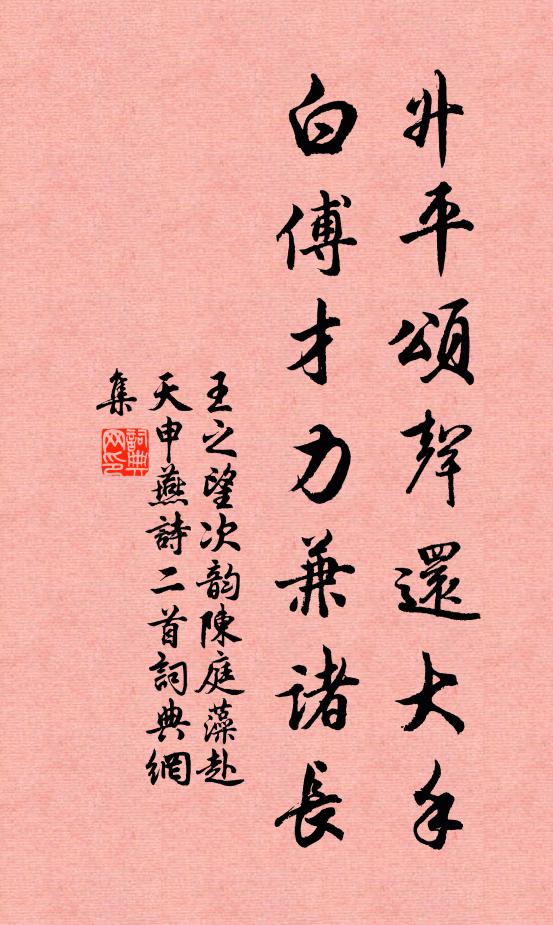 升平頌聲還大手
白傅才力兼諸長
王之望次韵陳庭藻赴
天申燕詩二首詞典網
集
詞典
网印